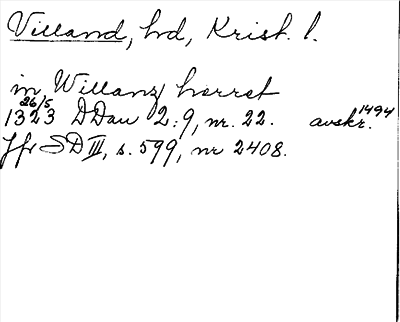 Villand, hd, Krist. l.
in Willanz hærret
1323 26/5 DDan 2:9, nr. 22. avskr. 1494
Jfr SD III, s. 599, nr 2408.